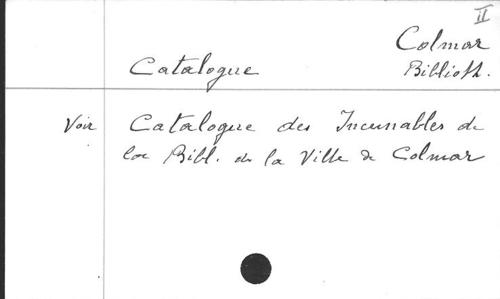 II
Colmar
Catalogue Biblioth.
Voir Catalogue des Incunables de
la Bibl. de la Ville de Colmar